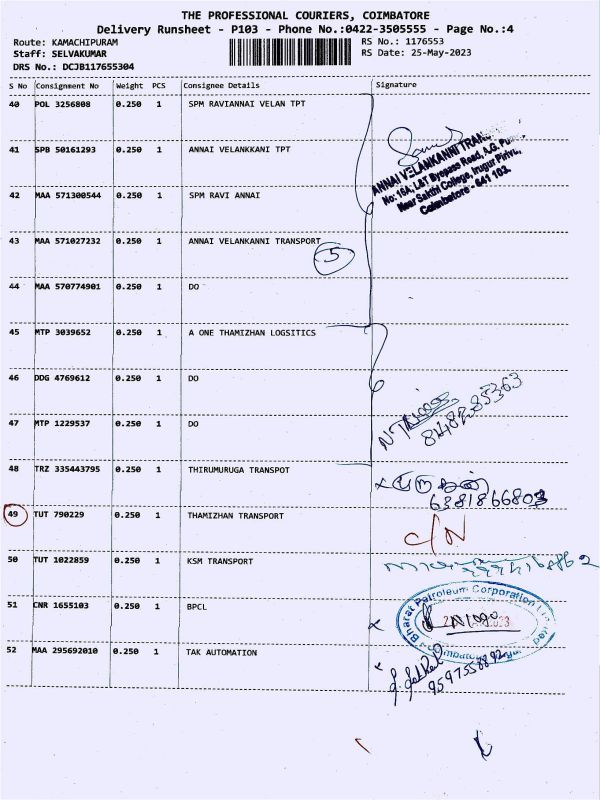 THE PROFESSIONAL COURIERS, COIMBATORE
Delivery Runsheet - P103 - Phone No.:0422-3505555 - Page No.:4
Route: KAMACHIPURAM
RS No.: 1176553
Staff: SELVAKUMAR
RS Date: 25-May-2023
DRS No.: DCJB117655304
S No Consignment No Weight PCS Consignee Details Signature
40 POL 3256808 0.250 1 SPM RAVIANNAI VELAN TPT
41 SPB 50161293 0.250 1 ANNAI VELANKKANI TPT
ANNAI VELANKANNI TRAN
No: 16A, L&T Byepass Road, A.G.
Near Sakthi College, Irugur Pirivu,
Coimbatore - 641 103.
42 MAA 571300544 0.250 1 SPM RAVI ANNAI
43 MAA 571027232 0.250 1 ANNAI VELANKANNI TRANSPORT
5
44 MAA 570774901 0.250 1 DO
45 MTP 3039652 0.250 1 A ONE THAMIZHAN LOGSITICS
46 DDG 4769612 0.250 1 DO
47 MTP 1229537 0.250 1 DO
48 TRZ 335443795 0.250 1 THIRUMURUGA TRANSPOT
6381866803
49 TUT 790229 0.250 1 THAMIZHAN TRANSPORT
C/N
50 TUT 1022859 0.250 1 KSM TRANSPORT
51 CNR 1655103 0.250 1 BPCL
Bharat Petroleum Corporation Limited
52 MAA 295692010 0.250 1 TAK AUTOMATION
9597558892